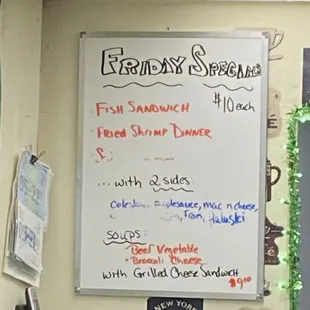 FRIDAY SPECIALS
$10 each
• FISH SANDWICH
• FRIED SHRIMP DINNER
•
... with 2 sides:
mac n cheese,
Fries, Haluski
SOUPS:
• Beef Vegetable
• Broccoli Cheese
with Grilled Cheese Sandwich
$9.00
NEW YORK